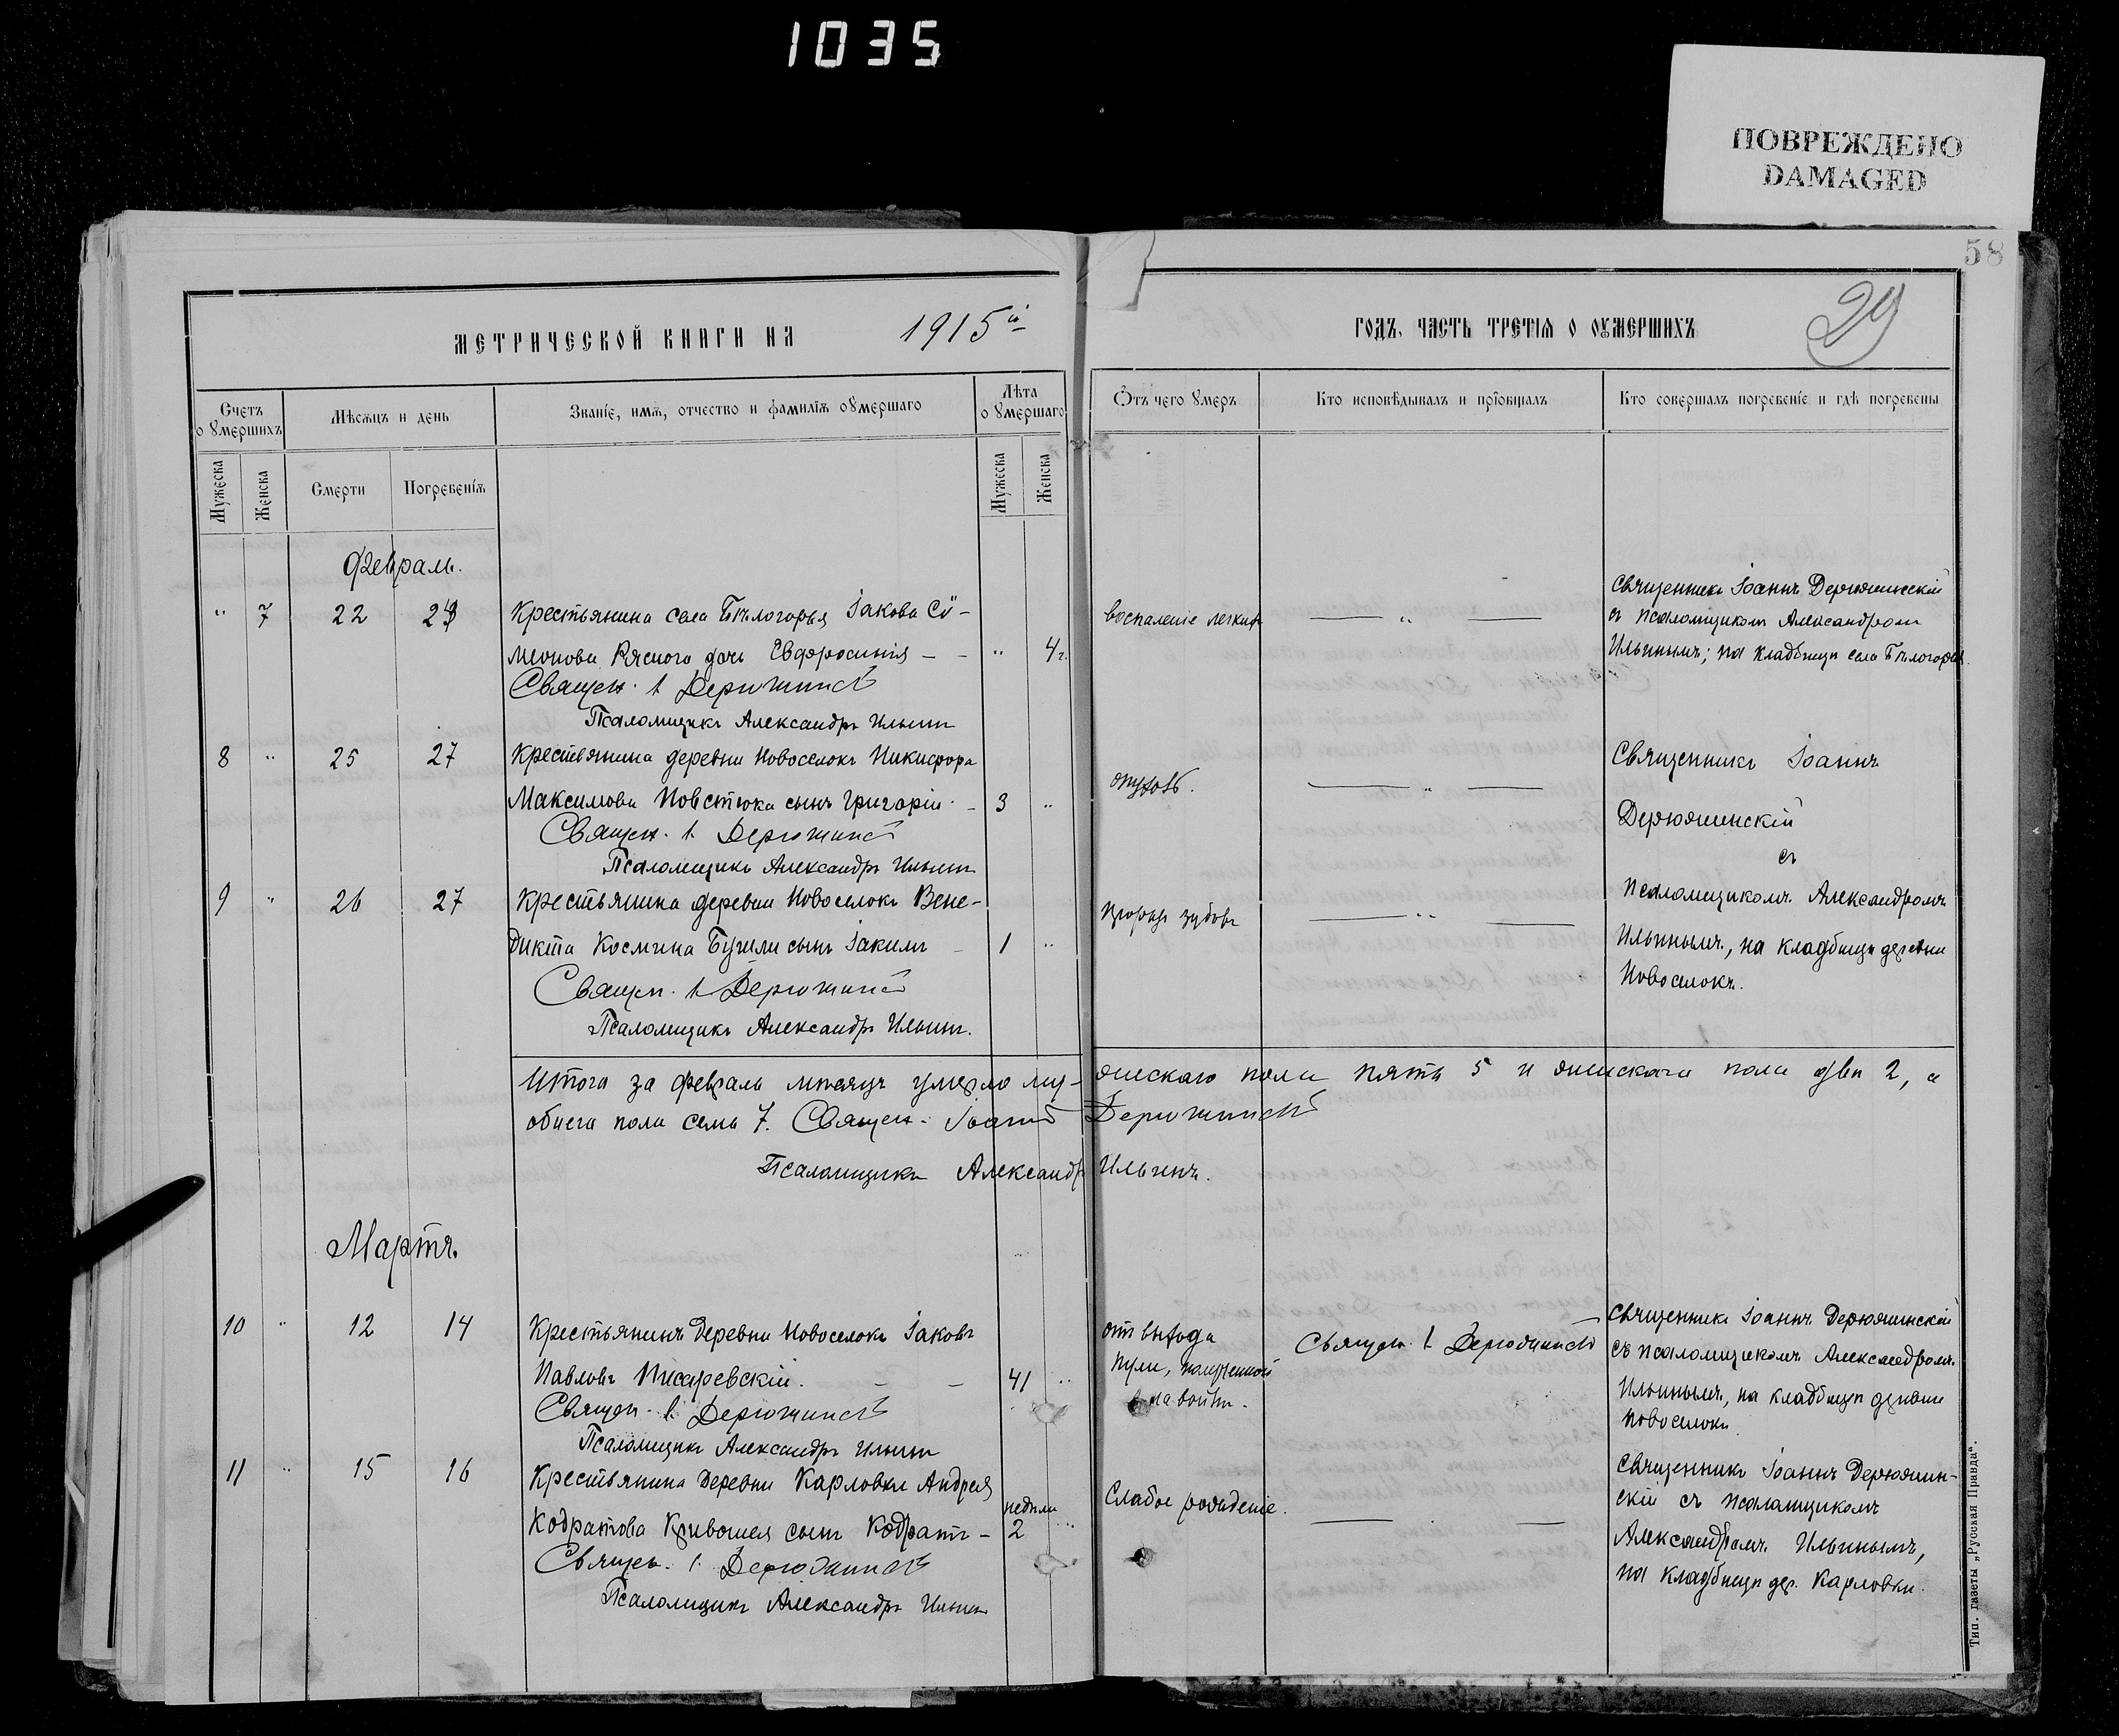 1035
ПОВРЕЖДЕНО
DAMAGED
58
29
МЕТРИЧЕСКОЙ КНИГИ НА 1915й
ГОДЪ. ЧАСТЬ ТРЕТІЯ О ОУМЕРШИХЪ
Счетъ о умершихъ
Мѣсяцъ и день
Званіе, имя, отчество и фамилія оумершаго
Лѣта о умершаго
Отъ чего умеръ
Кто исповѣдывалъ и пріобщалъ
Кто совершалъ погребеніе и гдѣ погребены
Мужеска
Женска
Смерти
Погребенія
Мужеска
Женска
Февраль.
" 7 22 23
Крестьянина села Бѣлогорья Іакова Си-
меонова Ряснога дочь Евфросинія - - " 4 г.
Священ. І Дерюжинскій
Псаломщикъ Александръ Ильинъ
воспаленіе легкихъ
— " —
Священникъ Іоаннъ Дерюжинскій
съ псаломщикомъ Александромъ
Ильинымъ; на кладбищѣ села Бѣлогорья.
8 " 25 27
Крестьянина деревни Новоселокъ Никифора
Максимова Повстюка сынъ Григорій - 3 "
Священ. І. Дерюжинскій
Псаломщикъ Александръ Ильинъ
опухоль.
— " —
Священникъ Іоаннъ
Дерюжинскій
съ
псаломщикомъ Александромъ
Ильинымъ, на кладбищѣ деревни
Новоселокъ.
9 " 26 27
Крестьянина деревни Новоселокъ Вене-
дикта Космина сынъ Іакимъ - 1 "
Священ. І Дерюжинскій
Псаломщикъ Александръ Ильинъ.
зубовъ
— " —
Итого за февраль мѣсяцъ умерло му-
жескаго пола пять 5 и женскаго пола двѣ 2, а
обоего пола семь 7. Священ. Іоаннъ Дерюжинскій
Псаломщикъ Александръ Ильинъ.
Мартъ.
10 " 12 14
Крестьянинъ деревни Новоселокъ Іаковъ
Павловъ Писаревскій. - - 41 "
Священ. І. Дерюжинскій
Псаломщикъ Александръ Ильинъ
отъ выхода
пули, полученной
на войнѣ.
Священ. І Дерюжинскій
Священникъ Іоаннъ Дерюжинскій
съ псаломщикомъ Александромъ
Ильинымъ, на кладбищѣ деревни
Новоселокъ
11 " 15 16
Крестьянина деревни Карловки Андрея
Кодратова Кривошея сынъ Кодратъ - недѣли 2 "
Священ. І. Дерюжинскій
Псаломщикъ Александръ Ильинъ
Слабое рожденіе.
— . —
Священникъ Іоаннъ Дерюжин-
скій съ псаломщикомъ
Александромъ Ильинымъ,
на кладбищѣ дер. Карловки.
Тип. газеты „Русская Правда".